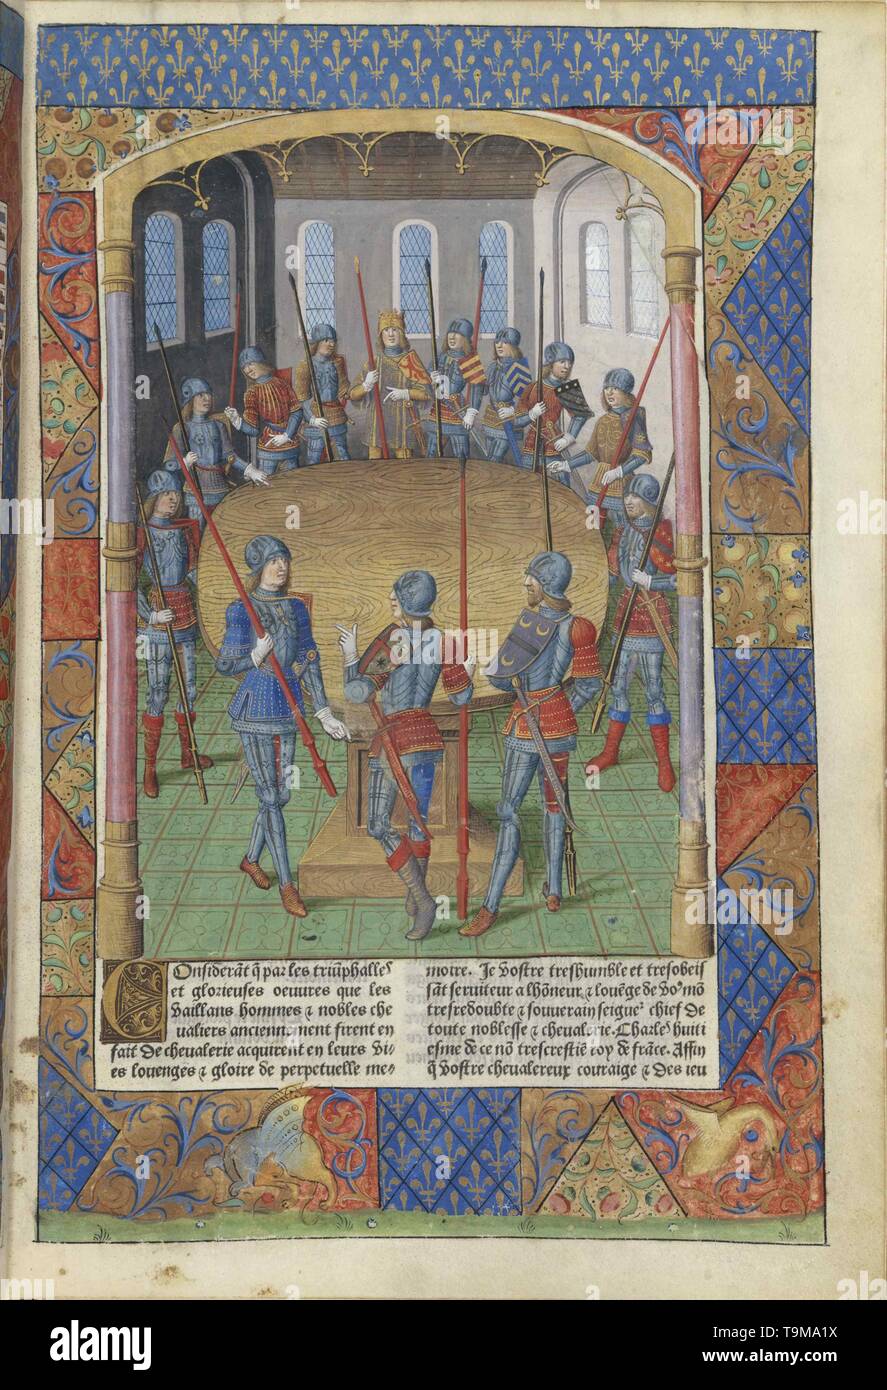 Considerãt q̃ par les triũphalles
et glorieuses oeuures que les
vaillans hommes ⁊ nobles che
ualiers anciennement firent en
fait de cheualerie acquirent en leurs vi-
es louenges ⁊ gloire de perpetuelle me-
moire. Je vostre treshumble et tresobeis
sãt seruiteur a lhõneur ⁊ louẽge de vous mõ
tresredoubte ⁊ souuerain seigneur chief de
toute noblesse ⁊ cheualerie. Charles huiti
esme de ce nõ trescrestiẽ roy de frãce. Affin
q̃ vostre cheualereux couraige ⁊ des ieu
a
alamy
alamy
a
alamy
Image ID: T9MA1X
www.alamy.com